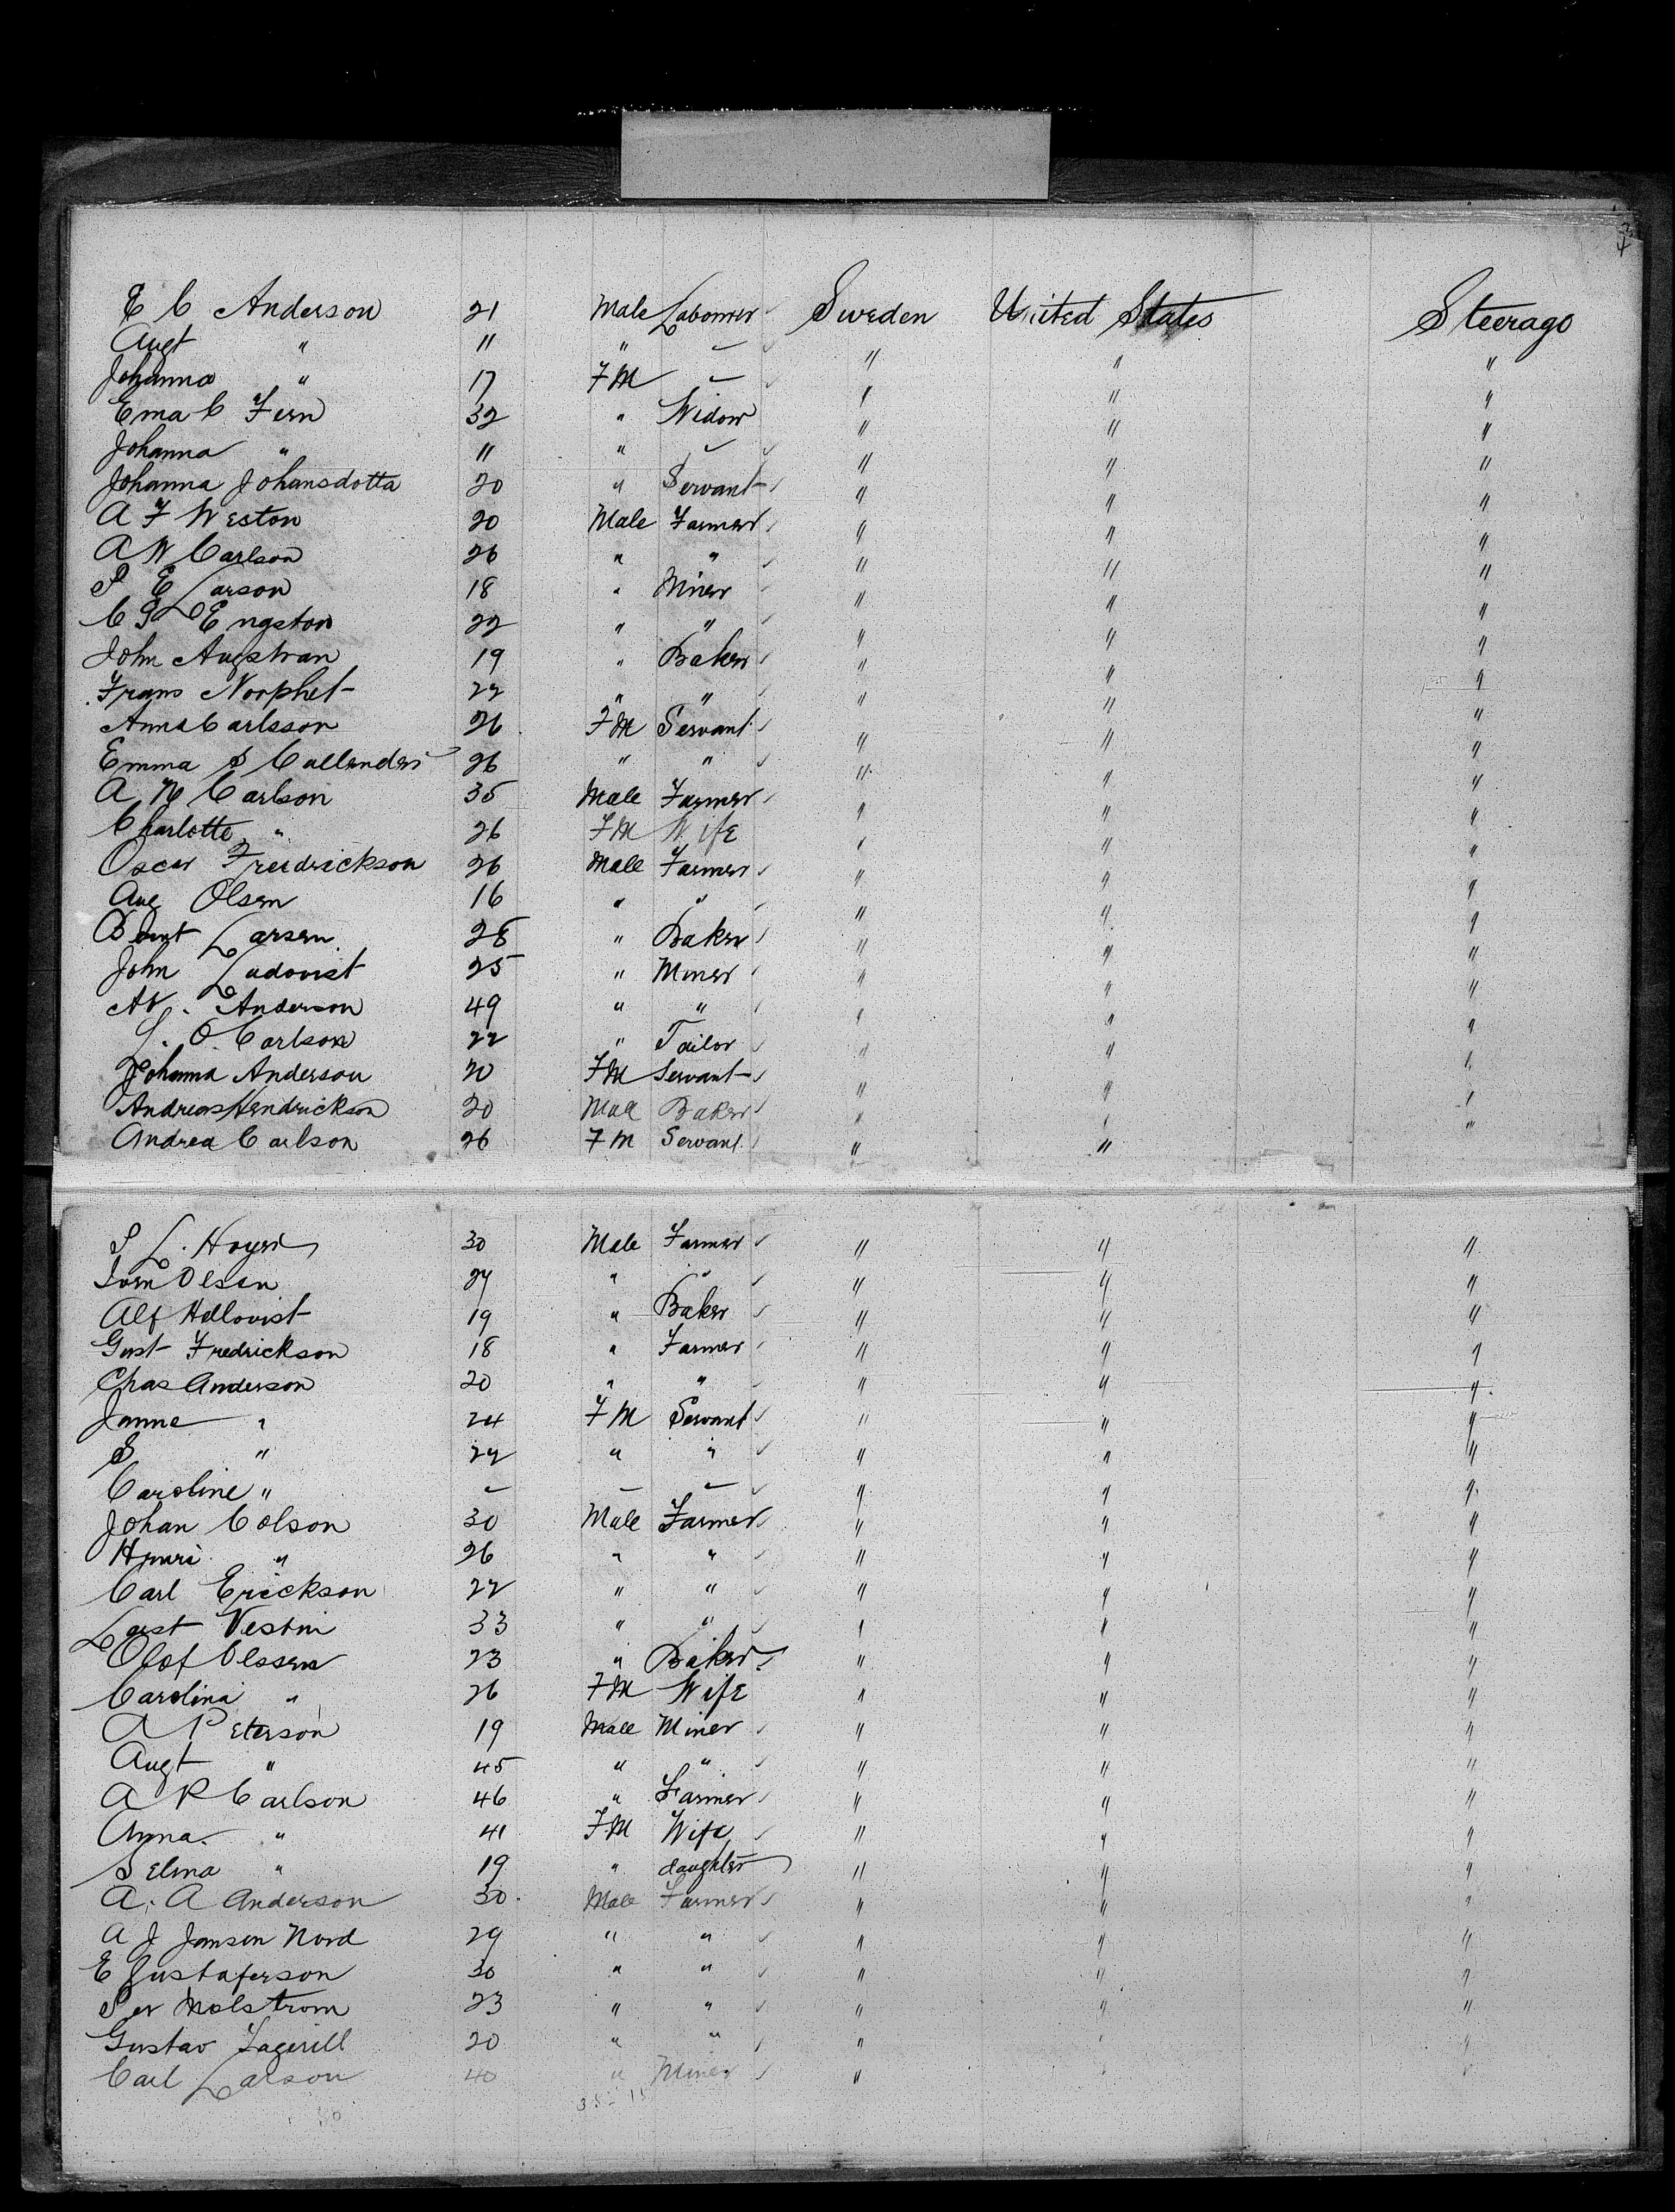 E C Anderson 21 Male Labourer Sweden United States Steerage
Augt " 11 " – " " "
Johanna " 17 FM – " " "
Ema C Fern 32 " Widow " " "
Johanna " 11 " – " " "
Johanna Johansdotta 20 " Servant " " "
A F Weston 20 Male Farmer " " "
A W Carlson 26 " " " " "
P E Larson 18 " Miner " " "
C G Engston 22 " " " " "
John Augstran 19 " Baker " " "
Frans Noophet 22 " " " " "
Anna Carlsson 26 FM Servant " " "
Emma S Callender 26 " " " " "
A N Carlson 35 Male Farmer " " "
Charlotte " 26 FM Wife " " "
Oscar Freidrickson 26 Male Farmer " " "
Aug Olsen 16 " " " " "
Bernt Larsen 28 " Baker " " "
John Ludovist 25 " Miner " " "
Anderson 49 " " " " "
L. O Carlson 22 " Tailor " " "
Johanna Anderson 20 FM Servant " " "
Andreas Hendrickson 20 Male Baker " " "
Andrea Carlson 26 FM Servant " " "
P L. Hoyer 30 Male Farmer " " "
Sven Olsen 27 " " " " "
Alf Hellovist 19 " Baker " " "
Gust Fredrickson 18 " Farmer " " "
Chas Anderson 20 " " " " "
Janne " 24 FM Servant " " "
S " 22 " " " " "
Caroline " – – – " " "
Johan Colson 30 Male Farmer " " "
Henri " 26 " " " " "
Carl Erickson 22 " " " " "
Last Vestin 33 " " " " "
Olof Olssen 23 " Baker " " "
Carolina " 26 FM Wife " " "
A Peterson 19 Male Miner " " "
Augt " 45 " " " " "
A P Carlson 46 " Farmer " " "
Anna " 41 FM Wife " " "
Selma " 19 " daughter " " "
A. A Anderson 30 Male Farmer " " "
A J Jansen Nord 29 " " " " "
E Gustaferson 30 " " " " "
Per Malstrom 23 " " " " "
Gustav Lagerill 20 " " " " "
Carl Larson 40 " Miner " " "